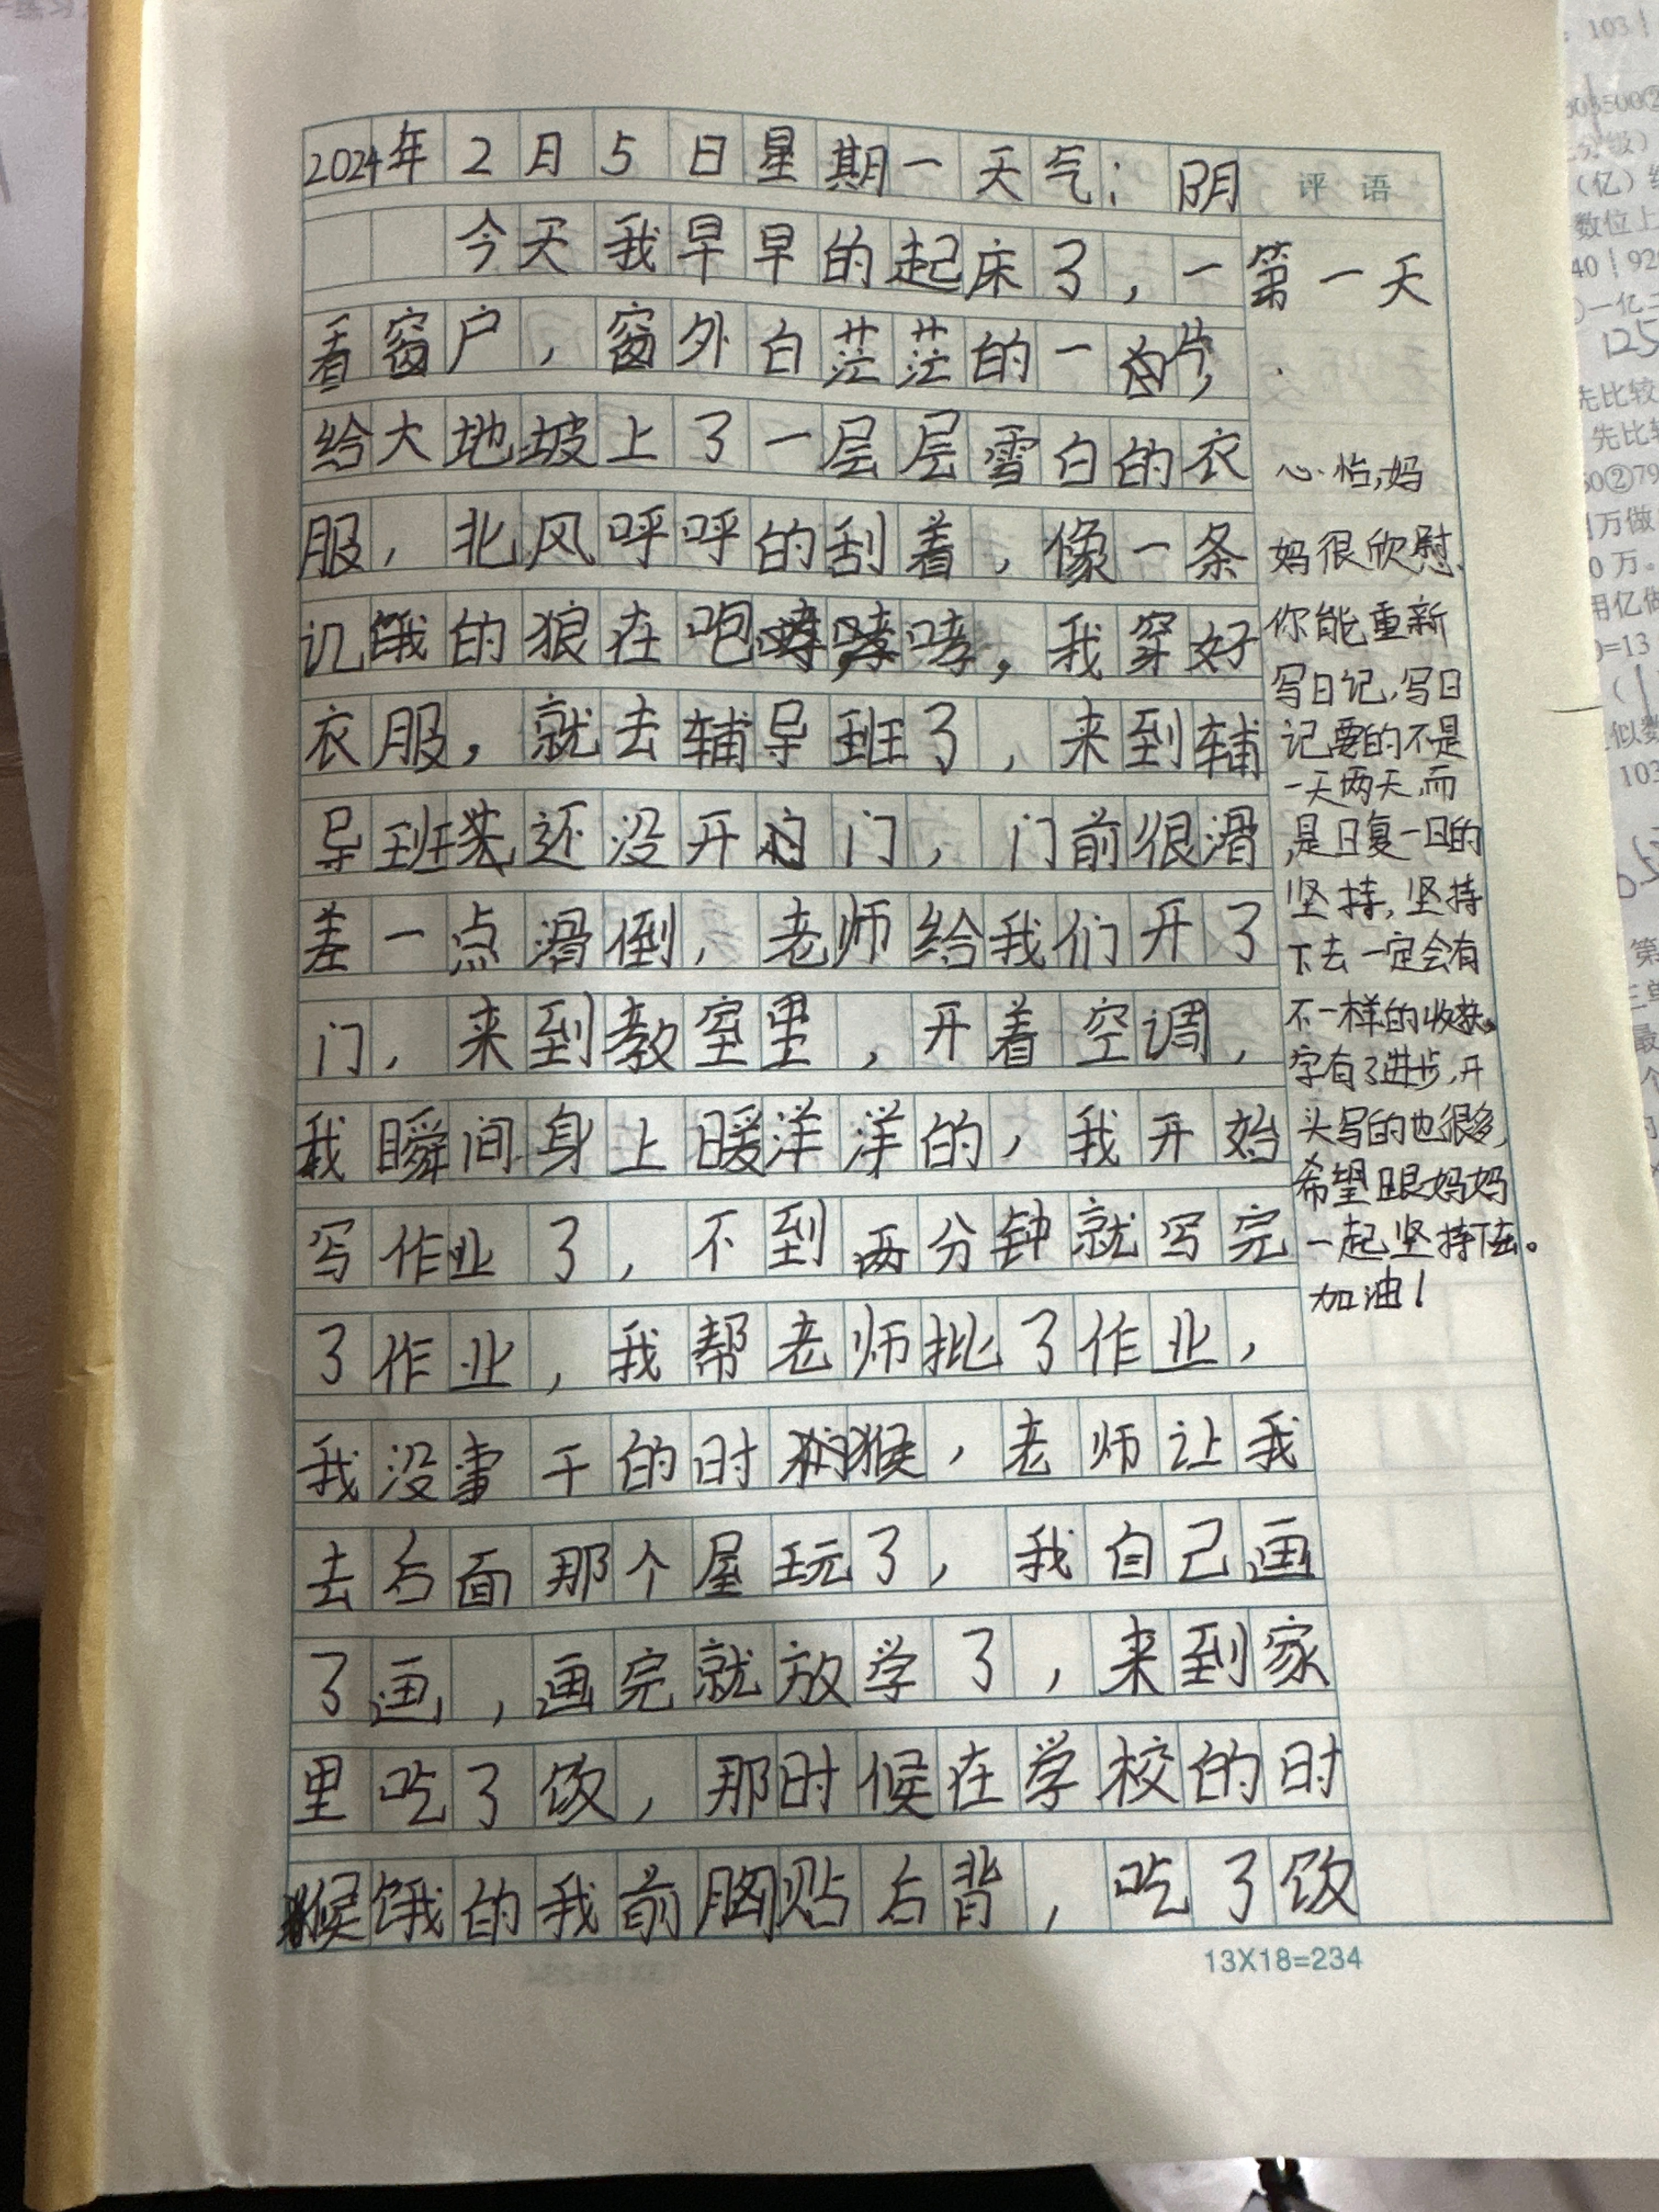 2024年2月5日星期一天气：阴
评语
今天我早早的起床了，一
看窗户，窗外白茫茫的一片，
给大地坡上了一层层雪白的衣
服，北风呼呼的刮着，像一条
饥饿的狼在咆哮，我穿好
衣服，就去辅导班了，来到辅
导班还没开门，门前很滑
差一点滑倒，老师给我们开了
门，来到教室里，开着空调，
我瞬间身上暖洋洋的，我开始
写作业了，不到两分钟就写完
了作业，我帮老师批了作业，
我没事干的时候，老师让我
去后面那个屋玩了，我自己画
了画，画完就放学了，来到家
里吃了饭，那时候在学校的时
候饿的我前胸贴后背，吃了饭
第一天
心怡，妈
妈很欣慰，
你能重新
写日记，写日
记要的不是
一天两天，而
是日复一日的
坚持，坚持
下去一定会有
不一样的收获。
字有了进步，开
头写的也很多，
希望跟妈妈
一起坚持下去。
加油！
13X18=234